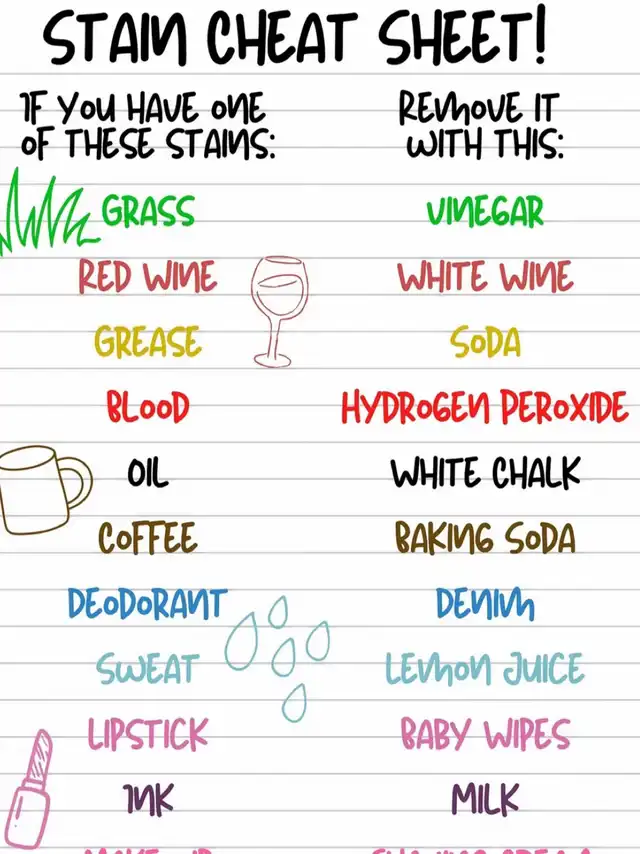 STAIN CHEAT SHEET!
IF YOU HAVE ONE
OF THESE STAINS:
REMOVE IT
WITH THIS:
GRASS VINEGAR
RED WINE WHITE WINE
GREASE SODA
BLOOD HYDROGEN PEROXIDE
OIL WHITE CHALK
COFFEE BAKING SODA
DEODORANT DENIM
SWEAT LEMON JUICE
LIPSTICK BABY WIPES
INK MILK